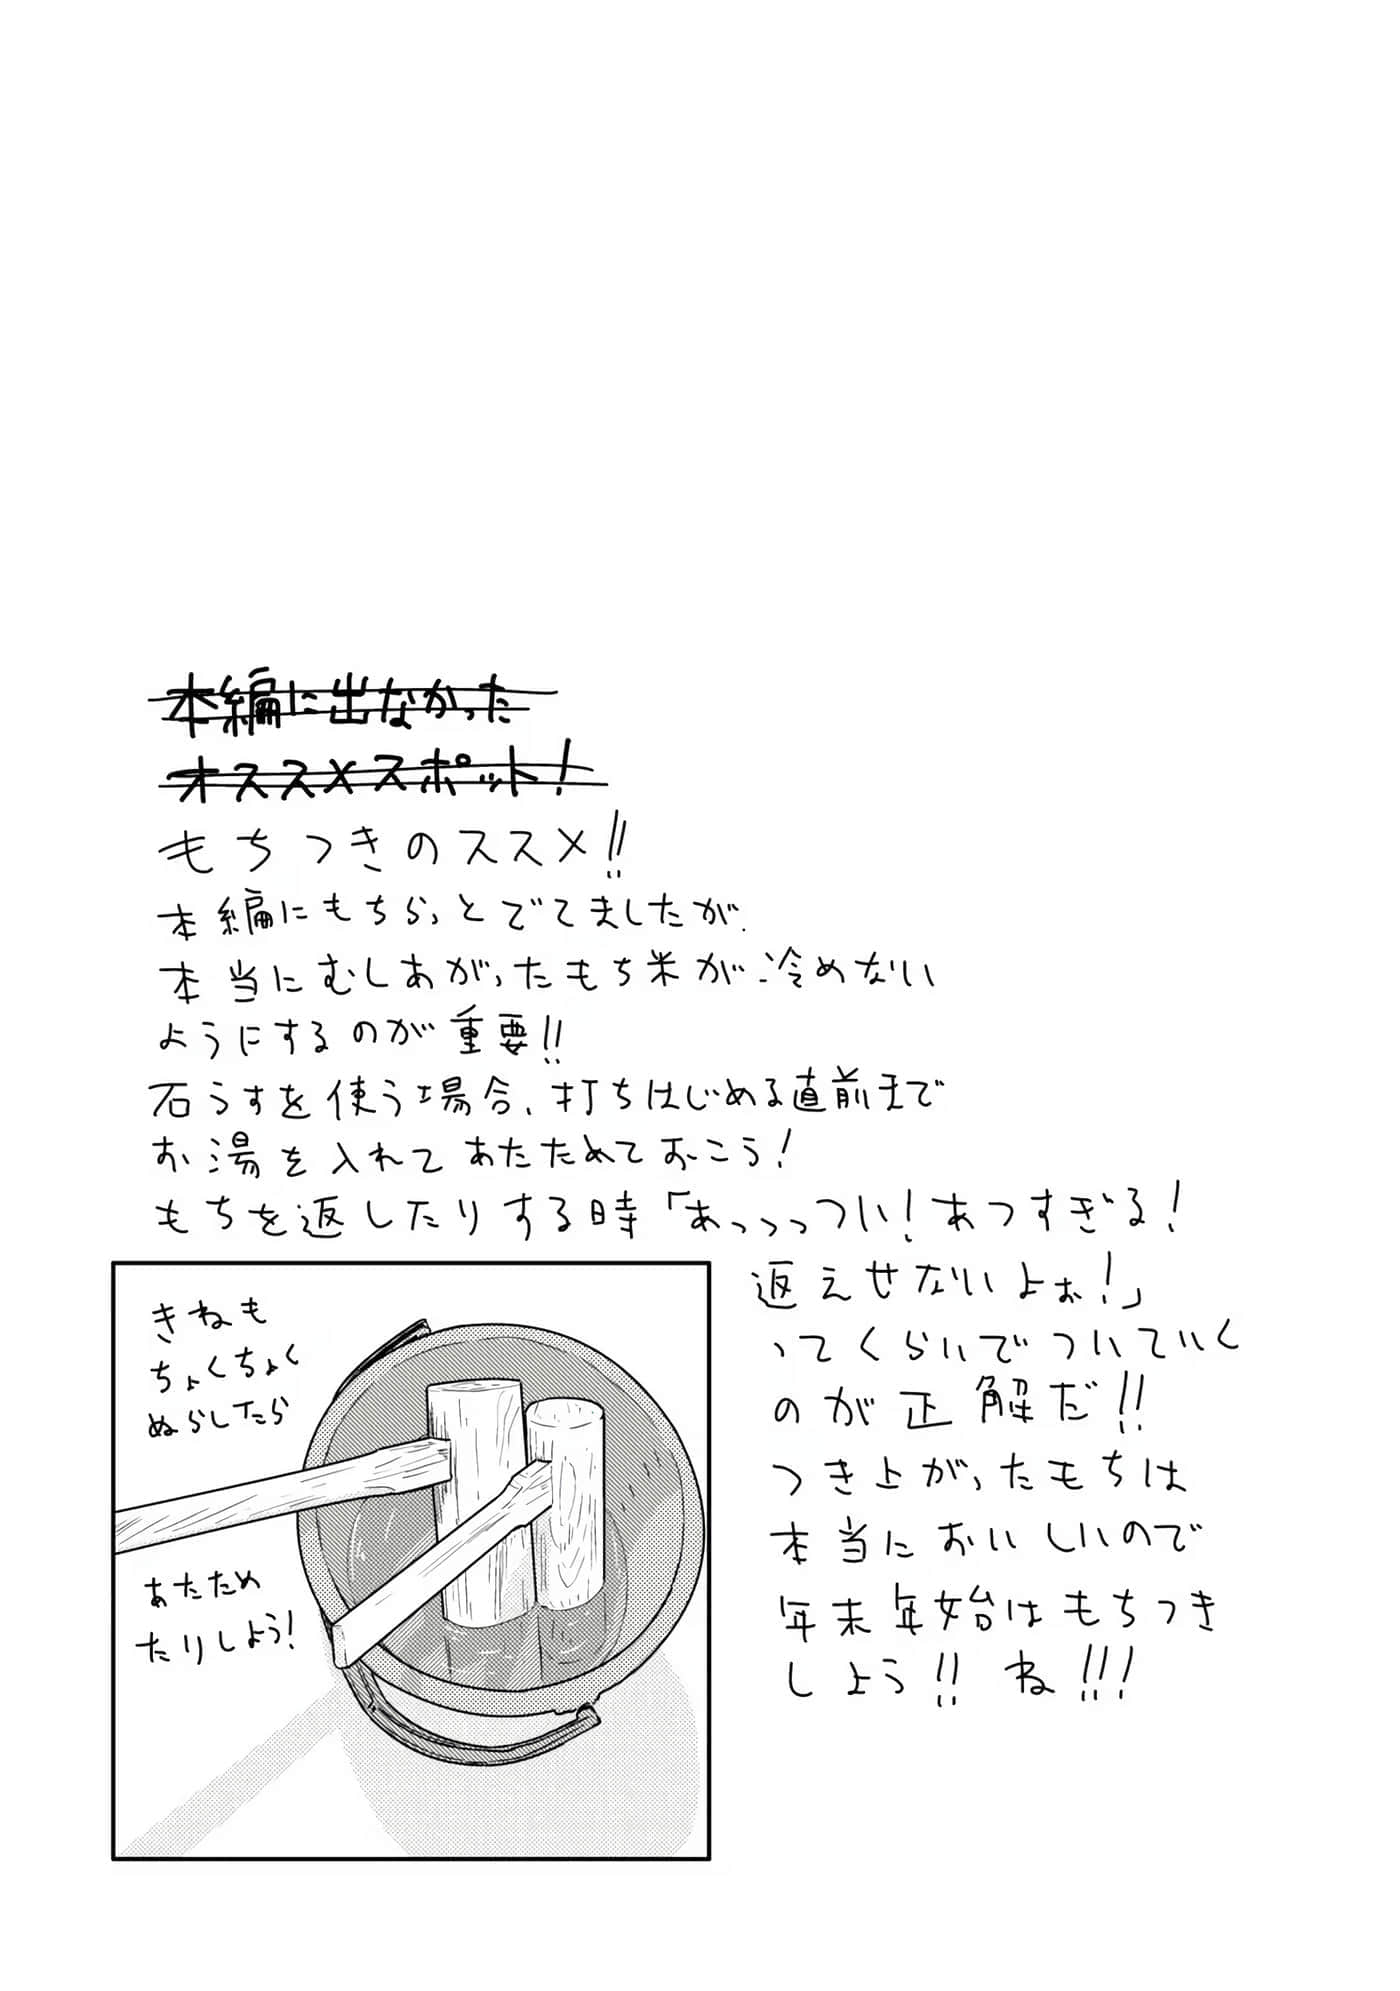 本編に出なかった
オススメスポット！
もちつきのススメ!!
本編にもちらっとでてましたが、
本当にむしあがったもち米が冷めない
ようにするのが重要!!
石うすを使う場合、打ちはじめる直前まで
お湯を入れてあたためておこう！
もちを返したりする時「あっっっつい！あつすぎる！
返えせないよぉ！」
ってくらいでついていく
のが正解だ!!
つき上がったもちは
本当においしいので
年末年始はもちつき
しよう!! ね!!!
きねも
ちょくちょく
ぬらしたら
あたため
たりしよう！